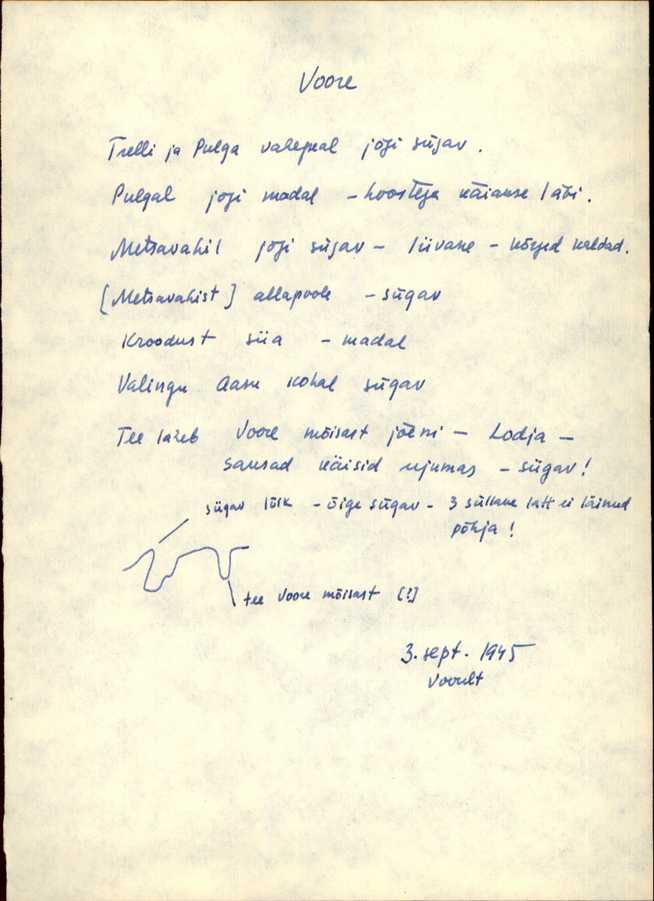 Voore
Trelli ja Pulga vahepeal jõgi sügav.
Pulgal jõgi madal – hoostega käiakse läbi.
Metsavahil jõgi sügav – liivane – kõrged kaldad.
[Metsavahist] allapoole – sügav
Kroodust siia – madal
Valingu Aasa kohal sügav
Tee läheb Voore mõisast jõeni – Lodja –
sausad käisid ujumas – sügav!
sügav lõik – õige sügav – 3 süllane latt ei läinud
põhja!
tee Voore mõisast [?]
3. sept. 1945
Voorelt